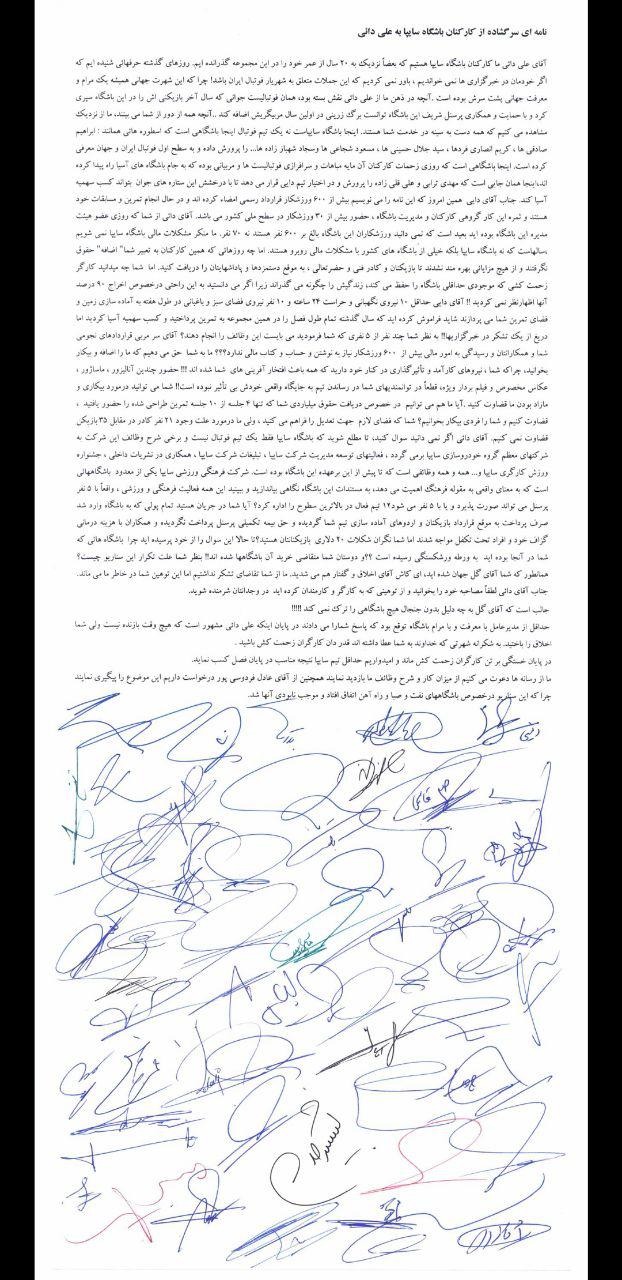 نامه ای سرگشاده از کارکنان باشگاه سایپا به علی دائی
آقای علی دائی ما کارکنان باشگاه سایپا هستیم که بعضاً نزدیک به ۲۰ سال از عمر خود را در این مجموعه گذرانده ایم. روزهای گذشته حرفهائی شنیده ایم که
اگر خودمان در خبرگزاری ها نمی خواندیم ، باور نمی کردیم که این جملات متعلق به شهریار فوتبال ایران باشد! چرا که این شهرت جهانی همیشه یک مرام و
معرفت جهانی پشت سرش بوده است .آنچه در ذهن ما از علی دائی نقش بسته بود، همان فوتبالیست جوانی که سال آخر بازیکنی اش را در این باشگاه سپری
کرد و با حمایت و همکاری پرسنل شریف این باشگاه توانست برگ زرینی در اولین سال مربیگریش اضافه کند ..آنچه همه از دور از شما می بینند، ما از نزدیک
مشاهده می کنیم که همه دست به سینه در خدمت شما هستند. اینجا باشگاه سایپاست نه یک تیم فوتبال اینجا باشگاهی است که اسطوره هائی همانند : ابراهیم
صادقی ها ، کریم انصاری فردها ، سید جلال حسینی ها ، مسعود شجاعی ها وسجاد شهباز زاده ها... را پرورش داده و به سطح اول فوتبال ایران و جهان معرفی
کرده است. اینجا باشگاهی است که روزی زحمات کارکنان آن مایه مباهات و سرافرازی فوتبالیست ها و مربیانی بوده که به جام باشگاه های آسیا راه پیدا کرده
اند،اینجا همان جایی است که مهدی ترابی و علی قلی زاده را پرورش و در اختیار تیم دایی قرار می دهد تا با درخشش این ستاره های جوان بتواند کسب سهمیه
آسیا کند. جناب آقای دایی همین امروز که این نامه را می نویسیم بیش از ۶۰۰ ورزشکار قرارداد رسمی امضاء کرده اند و در حال انجام تمرین و مسابقات خود
هستند و ثمره این کار گروهی کارکنان و مدیریت باشگاه ، حضور بیش از ۳۰ ورزشکار در سطح ملی کشور می باشد. آقای دائی از شما که روزی عضو هیئت
مدیره این باشگاه بوده اید بعید است که نمی دانید ورزشکاران این باشگاه بالغ بر ۶۰۰ نفر هستند نه ۷۰ نفر. ما منکر مشکلات مالی باشگاه سایپا نمی شویم
سالهاست که نه باشگاه سایپا بلکه خیلی از باشگاه های کشور با مشکلات مالی روبرو هستند. اما چه روزهائی که همین کارکنان به تعبیر شما" اضافه" حقوق
نگرفتند و از هیچ مزایائی بهره مند نشدند تا بازیکنان و کادر فنی و حضرتعالی ، به موقع دستمزدها و پاداشهایتان را دریافت کنید. اما شما چه میدانید کارگر
زحمت کشی که موجودی حداقلی باشگاه را حفظ می کند، زندگیش را چگونه می گذراند زیرا اگر می دانستید به این راحتی درخصوص اخراج ۹۰ درصد
آنها اظهارنظر نمی کردید !! آقای دایی حداقل ۱۰ نیروی نگهبانی و حراست ۲۴ ساعته و ۱۰ نفر نیروی فضای سبز و باغبانی در طول هفته به آماده سازی زمین و
فضای تمرین شما می پردازند شاید فراموش کرده اید که سال گذشته تمام طول فصل را در همین مجموعه به تمرین پرداختید و کسب سهمیه آسیا کردید اما
دریغ از یک تشکر در خبرگزاریها!! به نظر شما چند نفر از ۵ نفری که شما فرمودید می بایست این وظائف را انجام دهند؟ آقای سر مربی قراردادهای نجومی
شما و همکارانتان و رسیدگی به امور مالی بیش از ۶۰۰ ورزشکار نیاز به نوشتن و حساب و کتاب مالی ندارد؟؟؟ ما به شما حق می دهیم که ما را اضافه و بیکار
بخوانید، چراکه شما ، نیروهای کارآمد و تأثیرگذاری در کنار خود دارید که همه باعث افتخار آفرینی های شما شده اند !!! حضور چندین آنالیزور ، ماساژور ،
عکاس مخصوص و فیلم بردار ویژه، قطعاً در توانمندیهای شما در رساندن تیم به جایگاه واقعی خودش بی تأثیر نبوده است!! شما می توانید درمورد بیکاری و
مازاد بودن ما قضاوت کنید .آیا ما هم می توانیم در خصوص دریافت حقوق میلیاردی شما که تنها ۴ جلسه از ۱۰ جلسه تمرین طراحی شده را حضور یافتید ،
قضاوت کنیم و شما را فردی بیکار بخوانیم؟ شما که فضای لازم جهت تعدیل را فراهم می کنید ، ولی ما درمورد علت وجود ۲۱ نفر کادر در مقابل ۳۵ بازیکن
قضاوت نمی کنیم. آقای دائی اگر نمی دانید سوال کنید، تا مطلع شوید که باشگاه سایپا فقط یک تیم فوتبال نیست و برخی شرح وظائف این شرکت به
شرکتهای معظم گروه خودروسازی سایپا برمی گردد ، فعالیتهای توسعه مدیریت شرکت سایپا ، تبلیغات شرکت سایپا ، همکاری در نشریات داخلی ، جشنواره
ورزش کارگری سایپا و... همه و همه وظائفی است که تا پیش از این برعهده این باشگاه بوده است. شرکت فرهنگی ورزشی سایپا یکی از معدود باشگاههائی
است که به معنای واقعی به مقوله فرهنگ اهمیت می دهد، به مستندات این باشگاه نگاهی بیاندازید و ببینید این همه فعالیت فرهنگی و ورزشی ، واقعاً با ۵ نفر
پرسنل می تواند صورت پذیرد و یا با ۵ نفر می شود۱۲ تیم فعال در بالاترین سطوح را اداره کرد؟ آیا شما در جریان هستید تمام پولی که به باشگاه وارد شد
صرف پرداخت به موقع قرارداد بازیکنان و اردوهای آماده سازی تیم شما گردیده و حق بیمه تکمیلی پرسنل پرداخت نگردیده و همکاران با هزینه درمانی
گزاف خود و افراد تحت تکفل مواجه شدند اما شما نگران شکلات ۲۰ دلاری بازیکنانتان هستید؟تا حالا این سوال را از خود پرسیده اید چرا باشگاه هائی که
شما در آنجا بوده اید به ورطه ورشکستگی رسیده است ؟؟و دوستان شما متقاضی خرید آن باشگاهها شده اند!! بنظر شما علت تکرار این سناریو چیست؟
همانطور که شما آقای گل جهان شده اید، ای کاش آقای اخلاق و گفتار هم می شدید. ما از شما تقاضای تشکر نداشتیم اما این توهین شما در خاطر ما می ماند.
جناب آقای دائی لطفاً مصاحبه خود را بخوانید و از توهینی که به کارگر و کارمندان کرده اید در وجدانتان شرمنده شوید.
جالب است که آقای گل به چه دلیل بدون جنجال هیچ باشگاهی را ترک نمی کند !!!!!
حداقل از مدیرعامل با معرفت و با مرام باشگاه توقع بود که پاسخ شمارا می دادند در پایان اینکه علی دائی مشهور است که هیچ وقت بازنده نیست ولی شما
اخلاق را باختید. به شکرانه شهرتی که خداوند به شما عطا داشته اند قدر دان کارگران زحمت کش باشید .
در پایان خستگی بر تن کارگران زحمت کش ماند و امیدواریم حداقل تیم سایپا نتیجه مناسب در پایان فصل کسب نماید.
ما از رسانه ها دعوت می کنیم از میزان کار و شرح وظائف ما بازدید نمایند همچنین از آقای عادل فردوسی پور درخواست داریم این موضوع را پیگیری نمایند
چرا که این سناریو درخصوص باشگاههای نفت و صبا و راه آهن اتفاق افتاد و موجب نابودی آنها شد.